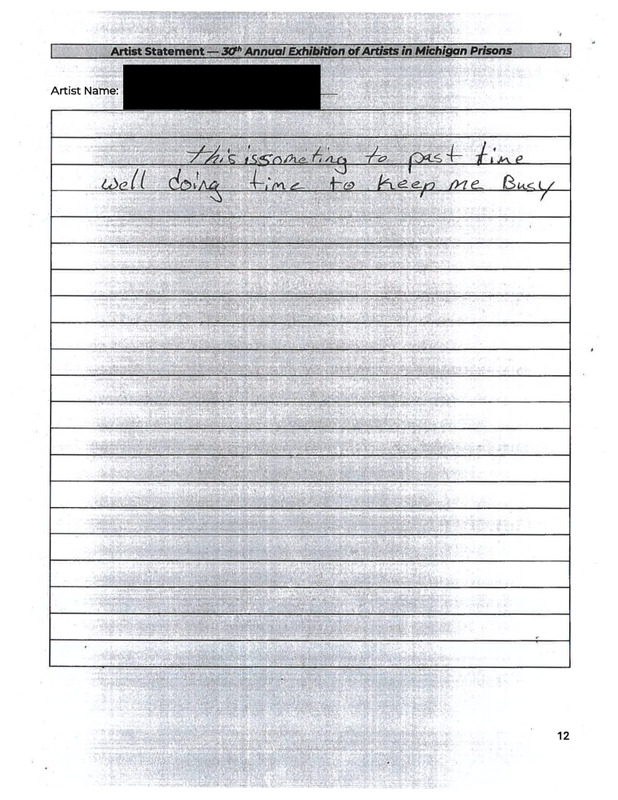 Artist Statement — 30th Annual Exhibition of Artists in Michigan Prisons
Artist Name:
this issometing to past time
well doing time to keep me Busy
12